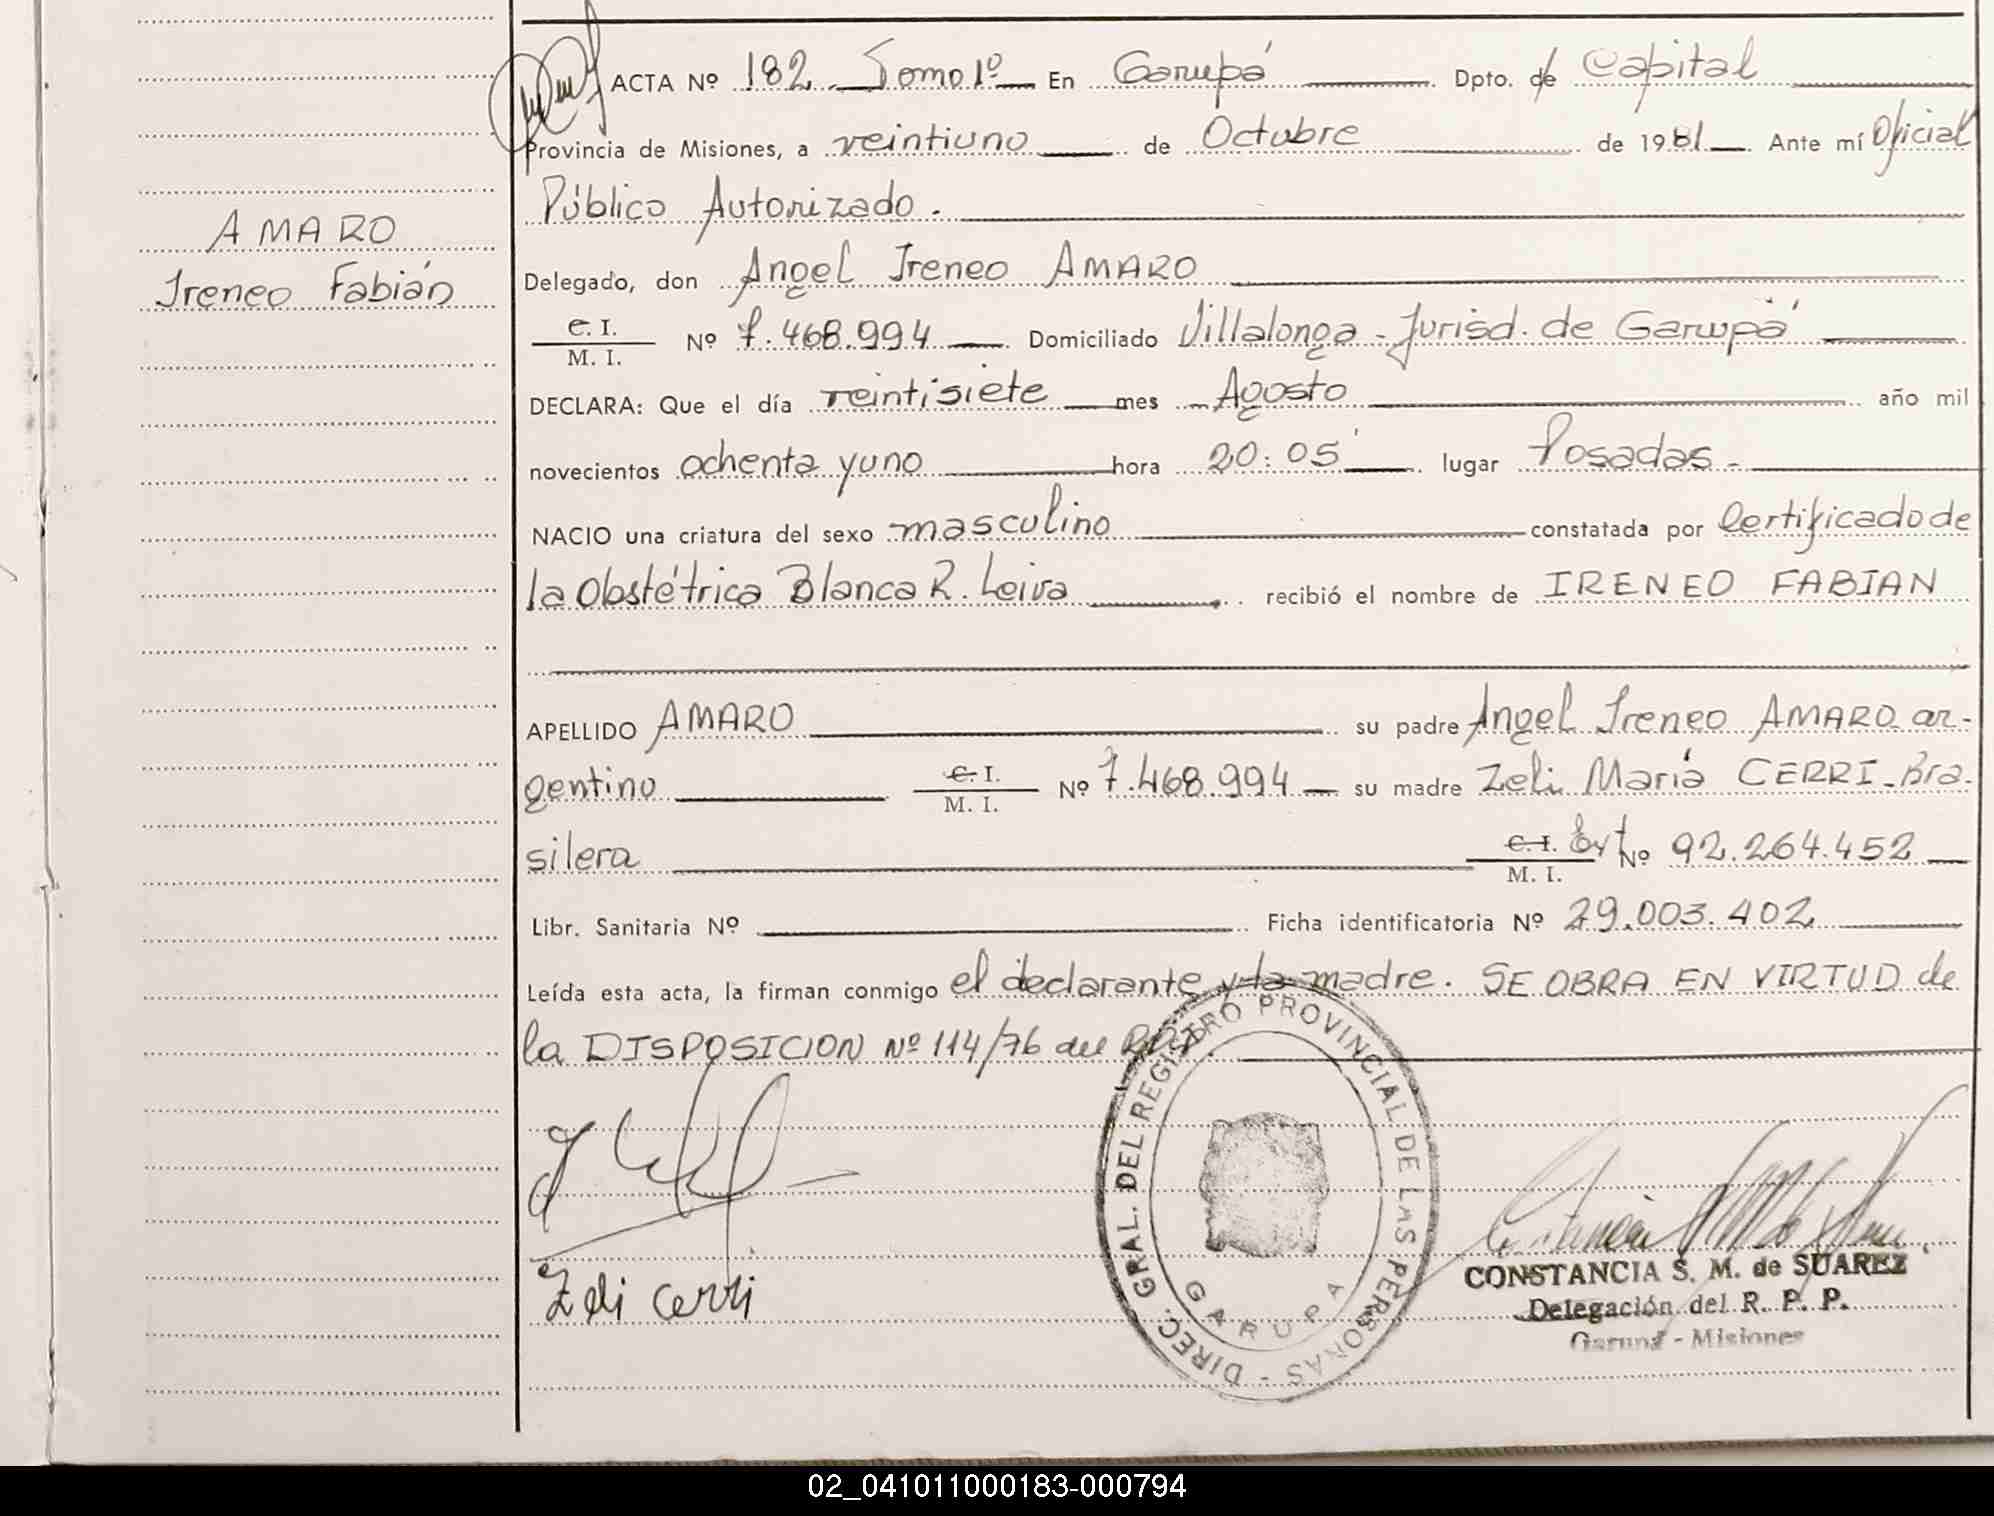 ACTA Nº 182 Tomo 1º En Garupá Dpto. de Capital
Provincia de Misiones, a veintiuno de Octubre de 1981 Ante mí Oficial
Público Autorizado.
AMARO
Ireneo Fabián
Delegado, don Angel Ireneo AMARO
C. I.
M. I.
Nº 7.468.994 Domiciliado Villalonga - Jurisd. de Garupá
DECLARA: Que el día veintisiete mes Agosto año mil
novecientos ochenta y uno hora 20:05 lugar Posadas -
NACIO una criatura del sexo masculino constatada por Certificado de
la Obstétrica Blanca R. Leiva recibió el nombre de IRENEO FABIAN
APELLIDO AMARO su padre Angel Ireneo AMARO ar-
gentino C. I. Nº 7.468.994 su madre Zeli María CERRI - Bra-
M. I.
silera C. I. Ext Nº 92.264.452
M. I.
Libr. Sanitaria Nº Ficha identificatoria Nº 29.003.402
Leída esta acta, la firman conmigo el declarante y la madre. SE OBRA EN VIRTUD de
la DISPOSICION Nº 114/76 del
DIREC. GRAL. DEL REGISTRO PROVINCIAL DE LAS PERSONAS -
GARUPA
Zeli Cerri
CONSTANCIA S. M. de SUAREZ
Delegación del R. P. P.
Garupá - Misiones
02_041011000183-000794